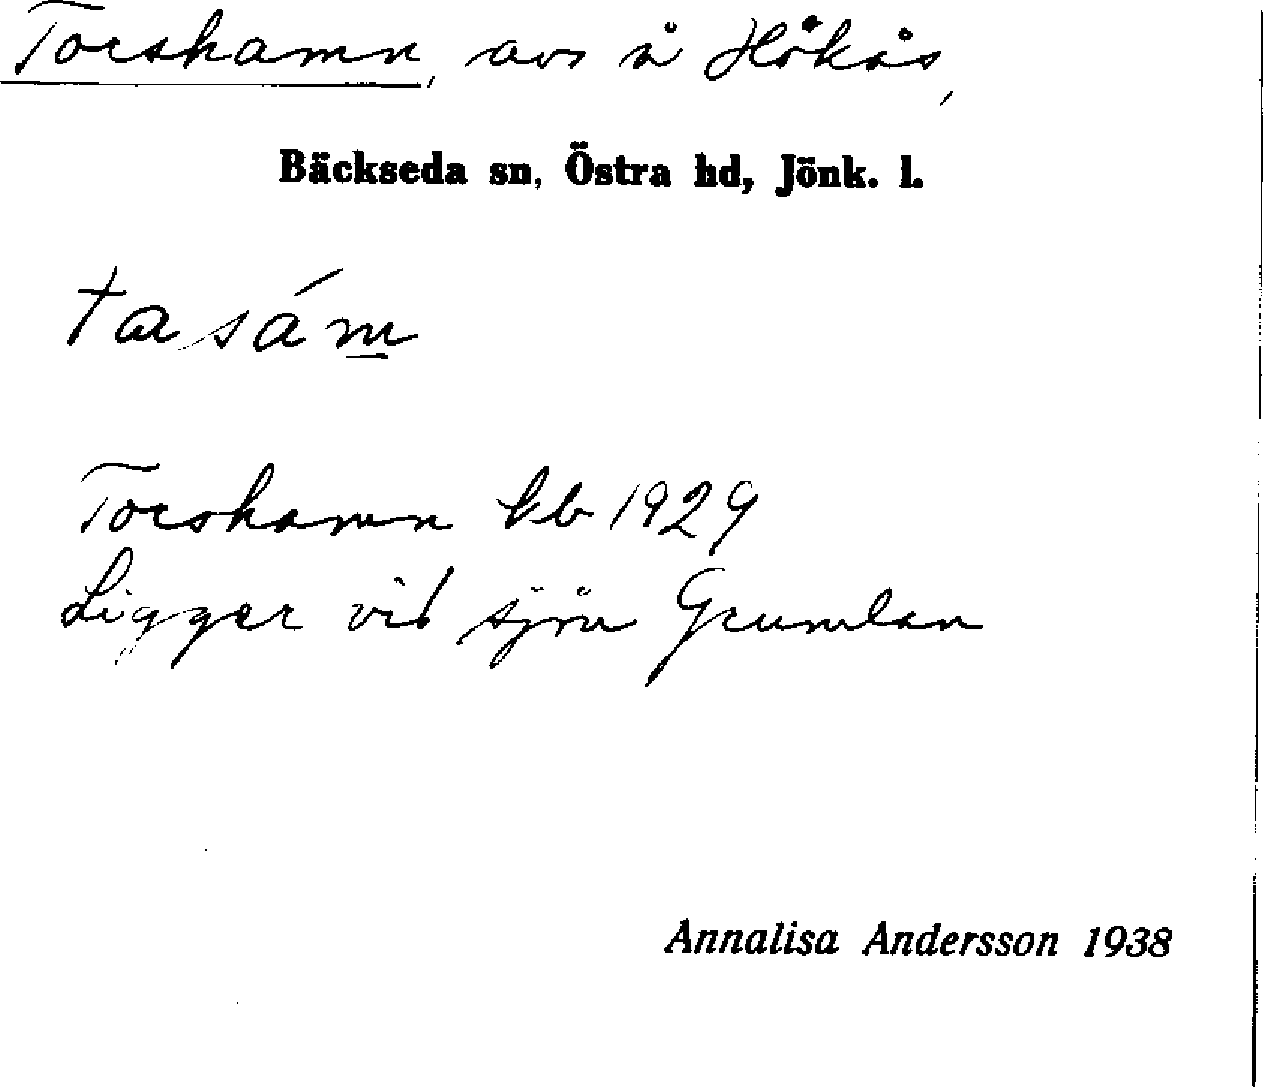 Torshamn, avs å Hökås,
Bäckseda sn, Östra hd, Jönk. l.
tasám
Torshamn kb 1929
Ligger vid sjön Grumlan
Annalisa Andersson 1938